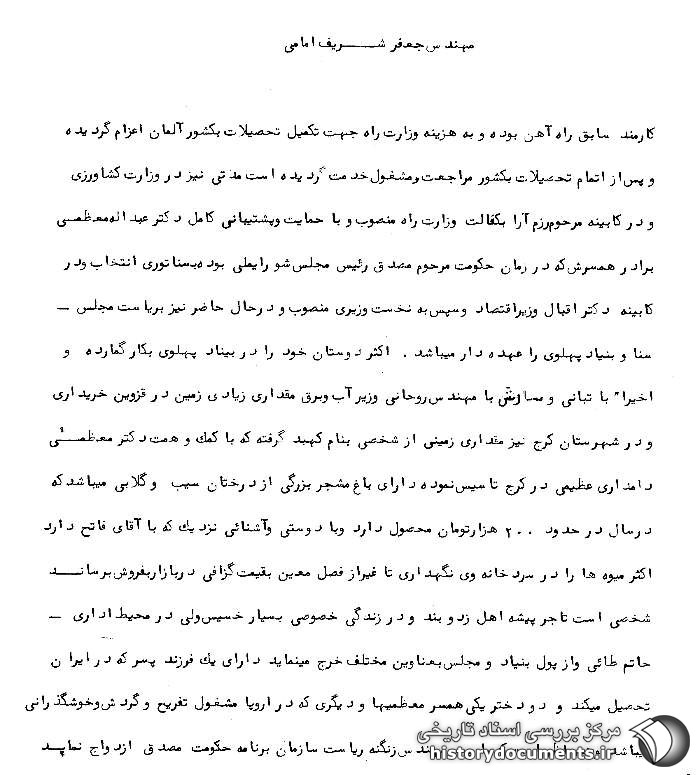 مهندس جعفر شـــریف امامی
کارمند سابق راه آهن بوده و به هزینه وزارت راه جهت تکمیل تحصیلات بکشور آلمان اعزام گردیده
و پس از اتمام تحصیلات بکشور مراجعت ومشغول خدمت گردیده است مدتی نیز در وزارت کشاورزی
و در کابینه مرحوم رزم آرا بکفالت وزارت راه منصوب و با حمایت وپشتیبانی کامل دکتر عبداله معظمـی
برادر همسرش که در زمان حکومت مرحوم مصدق رئیس مجلس شورایملی بوده بسناتوری انتخاب ودر
کابینه دکتر اقبال وزیر اقتصاد وسپس به نخست وزیری منصوب و در حال حاضر نیز بریاست مجلس ـ
سنا و بنیاد پهلوی را عهده دار میباشد . اکثر دوستان خود را در بنیاد پهلوی بکار گمارده و
اخیرا" با تبانی و با مهندس روحانی وزیر آب وبرق مقداری زیادی زمین در قزوین خریداری
و در شهرستان کرج نیز مقداری زمینی از شخصی بنام کهبد گرفته که با کمک و همت دکتر معظمـی
دامداری عظیمی در کرج تاسیس نموده دارای باغ مشجر بزرگی از درختان سیب و گلابی میباشد که
در سال در حدود ۲۰۰ هزارتومان محصول دارد وبا دوستی وآشنائی نزدیک که با آقای فاتح دارد
اکثر میوه ها را در سردخانه وی نگهداری تا غیر از فصل معین بقیمت گزافی دربازار بفروش برسانــد
شخصی است تاجر پیشه اهل زد و بند و در زندگی خصوصی بسیار خسیس ولی در محیط اداری ـ
حاتم طائی واز پول بنیاد و مجلس بعناوین مختلف خرج مینماید دارای یک فرزند پسر که در ایران
تحصیل میکند و دو دختر یکی همسر معظمیها و دیگری که در اروپا مشغول تفریح و گردش وخوشگذرانی
زنگنه ریاست سازمان برنامه حکومت مصدق ازدواج نماید
مرکز بررسی اسناد تاریخی
historydocuments.ir